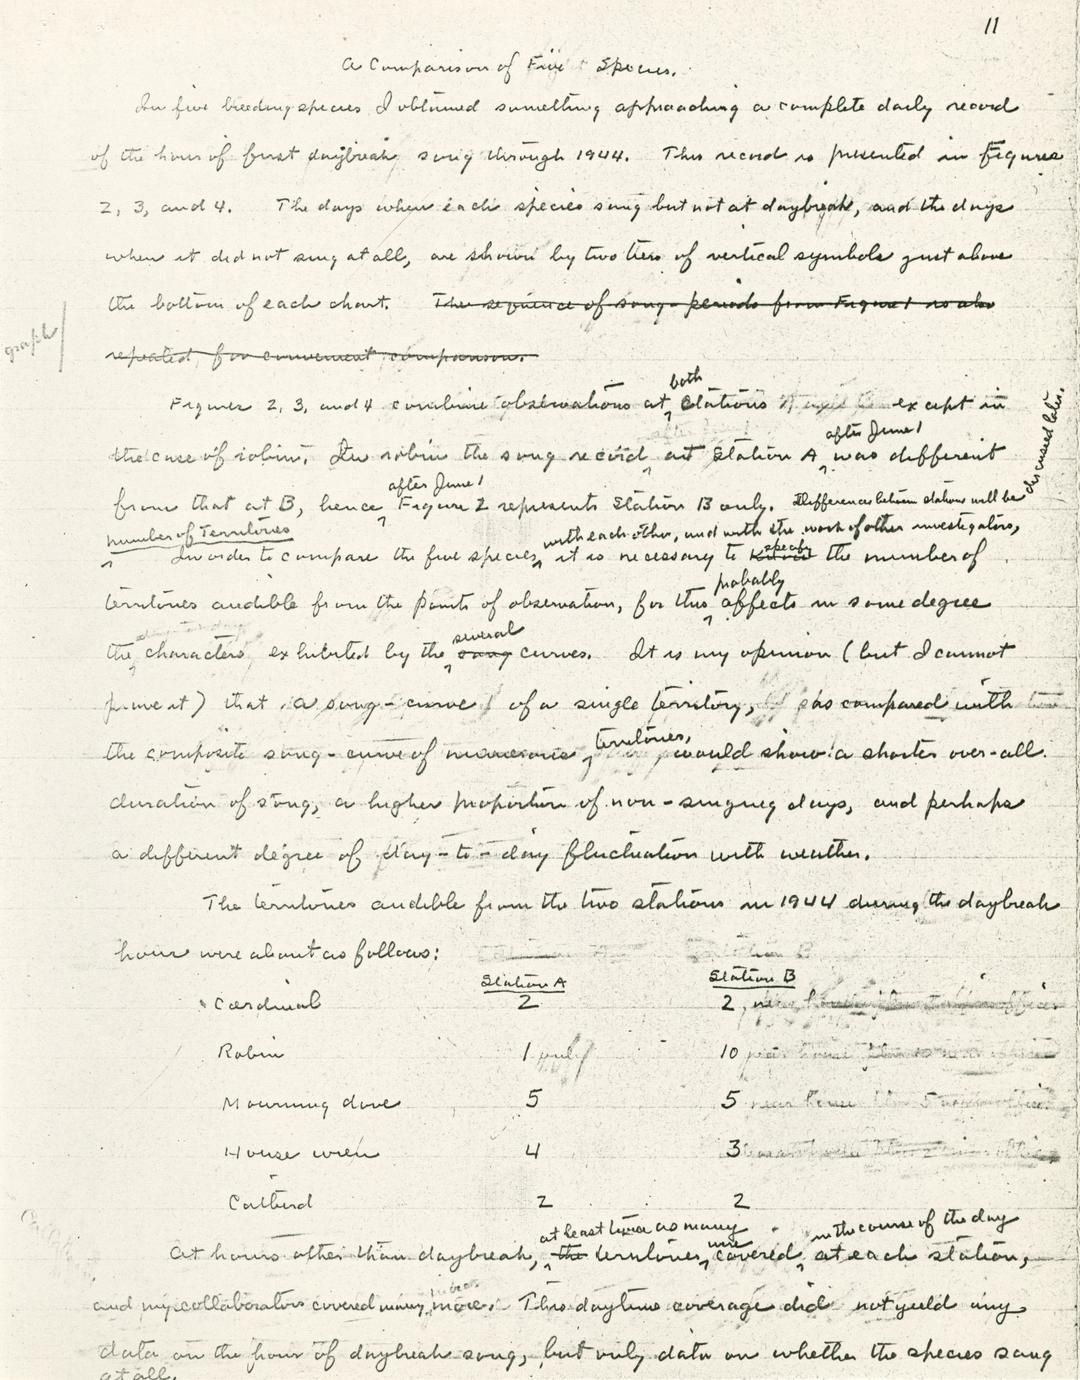 11
A Comparison of Five Species.
In five breeding species I obtained something approaching a complete daily record
of the hour of first daybreak song through 1944. This record is presented in figures
2, 3, and 4. The days when each species sang but not at daybreak, and the days
when it did not sing at all, are shown by two tiers of vertical symbols just above
the bottom of each chart. The sequence of song-periods from Figure 1 is also
graph/
repeated for convenient comparison.
both
Figures 2, 3, and 4 combine observations at stations except in
after June 1
the case of robin. In robin the song record at Station A was different
after June 1
from that at B, hence Figure 2 represents Station B only. Differences between stations will be
discussed later.
number of Territories
with each other, and with the work of other investigators,
In order to compare the five species, it is necessary to specify the number of
probably
territories audible from the points of observation, for this affects in some degree
several
the characters exhibited by the song curves. It is my opinion (but I cannot
prove it) that a song-curve of a single territory, as compared with
territories,
the composite song-curve of numerous would show a shorter over-all
duration of song, a higher proportion of non-singing days, and perhaps
a different degree of day-to-day fluctuation with weather.
The territories audible from the two stations in 1944 during the daybreak
hour were about as follows:
Station A Station B
Cardinal 2 2
Robin 1 only 10
Mourning dove 5 5
House wren 4 3
Catbird 2 2
at least twice as many were in the course of the day
At hours other than daybreak, the territories covered at each station,
and my collaborators covered many more. This daytime coverage did not yield any
data on the hour of daybreak song, but only data on whether the species sang
at all.